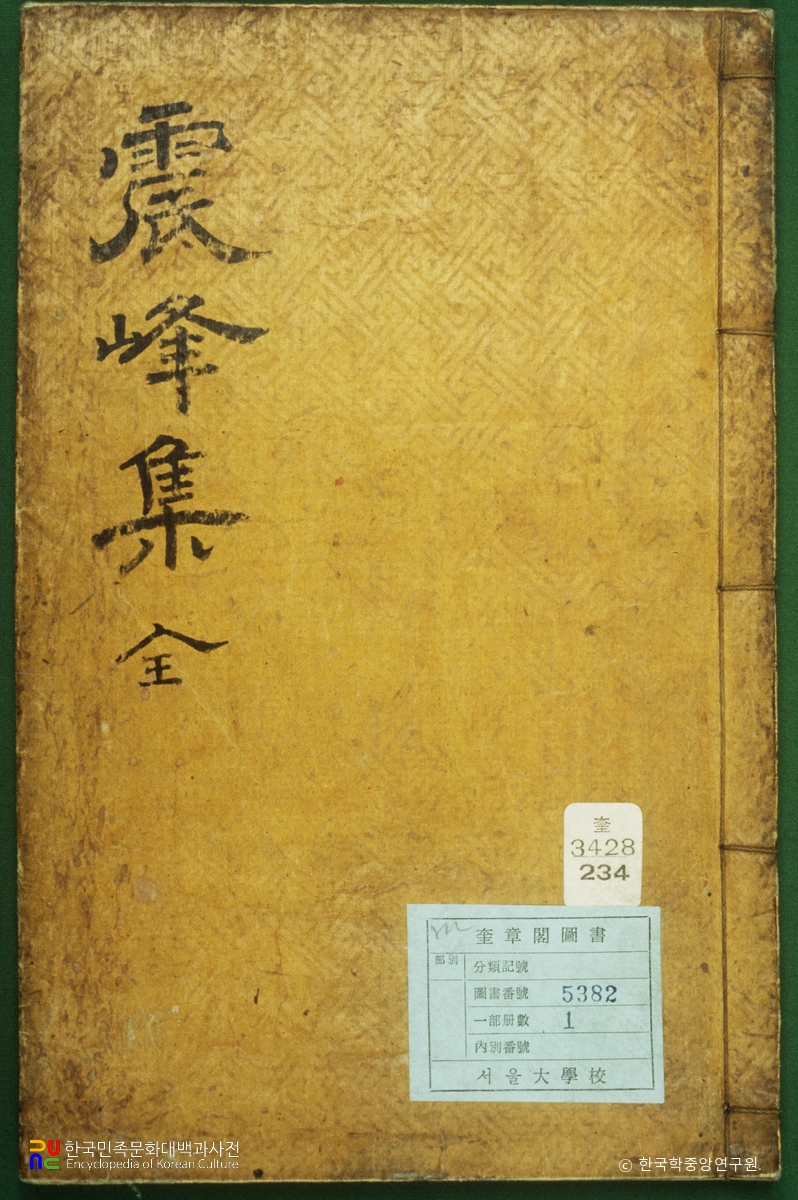 震峰集 全
奎
3428
234
奎章閣圖書
部別
分類記號
圖書番號 5382
一部册數 1
內別番號
서울大學校
한국민족문화대백과사전
Encyclopedia of Korean Culture
© 한국학중앙연구원.